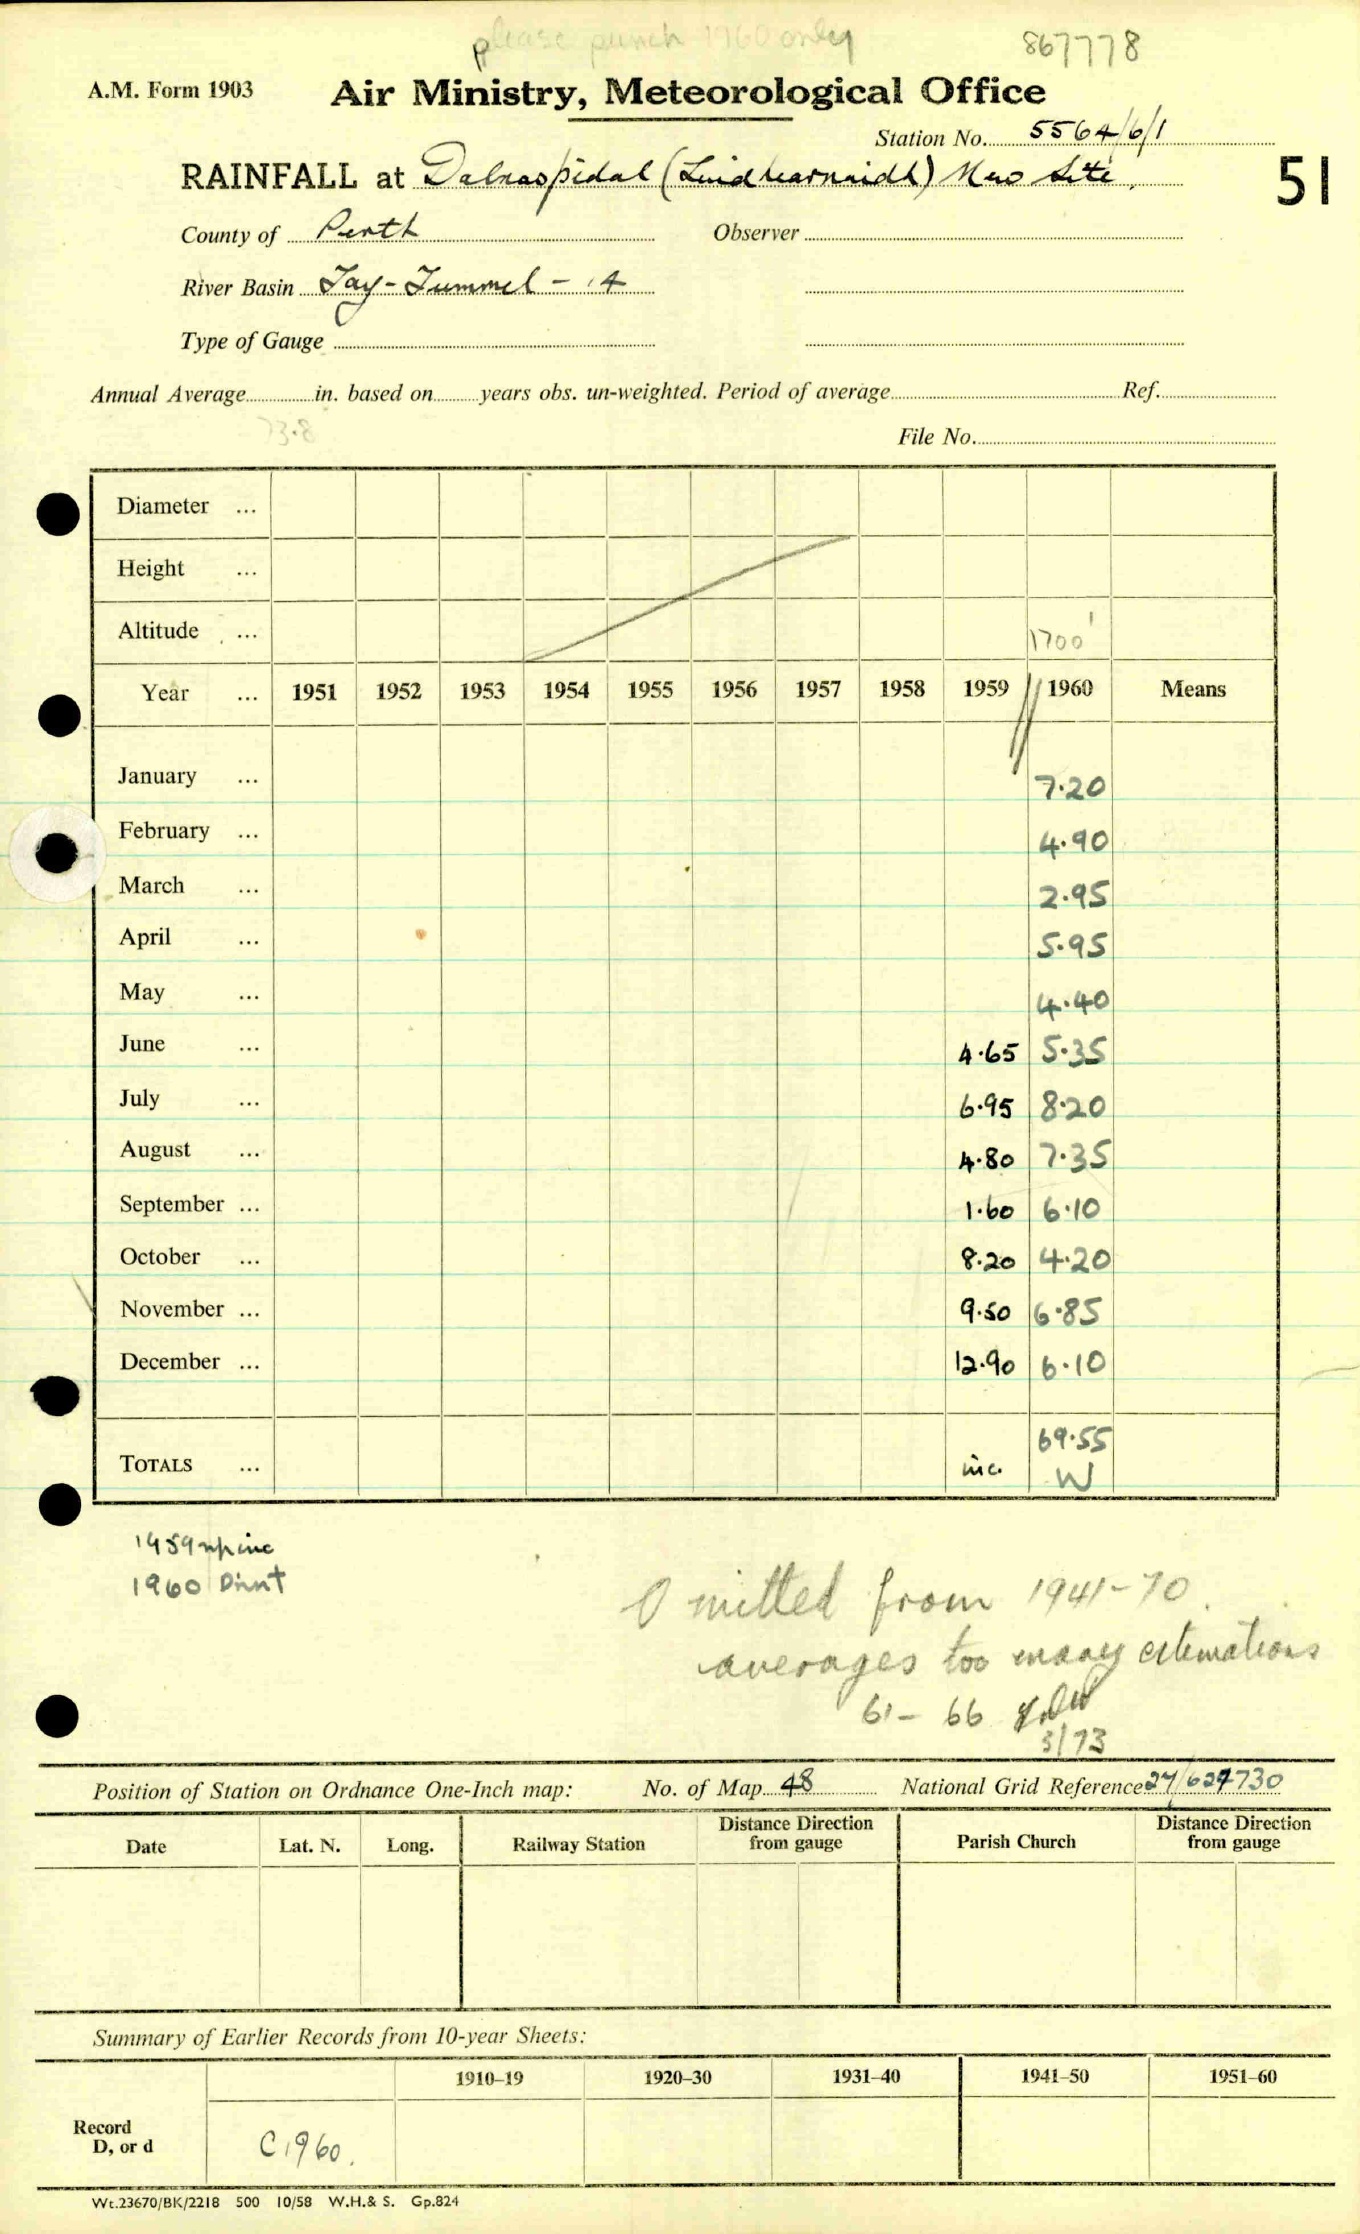 please punch 1960 only
867778
A.M. Form 1903
Air Ministry, Meteorological Office
Station No. 5564/6/1
RAINFALL at Dalnaspidal (Luidhearnaidh) New Site.
51
County of Perth Observer
River Basin Tay-Tummel - 14
Type of Gauge
Annual Average in. based on years obs. un-weighted. Period of average Ref.
73.8
File No.
Diameter ...
Height ...
Altitude ... 1700'
Year ... 1951 1952 1953 1954 1955 1956 1957 1958 1959 1960 Means
January ... 7.20
February ... 4.90
March ... 2.95
April ... 5.95
May ... 4.40
June ... 4.65 5.35
July ... 6.95 8.20
August ... 4.80 7.35
September ... 1.60 6.10
October ... 8.20 4.20
November ... 9.50 6.85
December ... 12.90 6.10
TOTALS ... inc. 69.55
W
1959 inc
1960
Omitted from 1941-70
averages too many estimations
61-66
3/73
Position of Station on Ordnance One-Inch map: No. of Map 48 National Grid Reference 27/627730
Date Lat. N. Long. Railway Station Distance Direction from gauge Parish Church Distance Direction from gauge
Summary of Earlier Records from 10-year Sheets:
1910–19 1920–30 1931–40 1941–50 1951–60
Record
D, or d C1960.
Wt.23670/BK/2218 500 10/58 W.H.& S. Gp.824